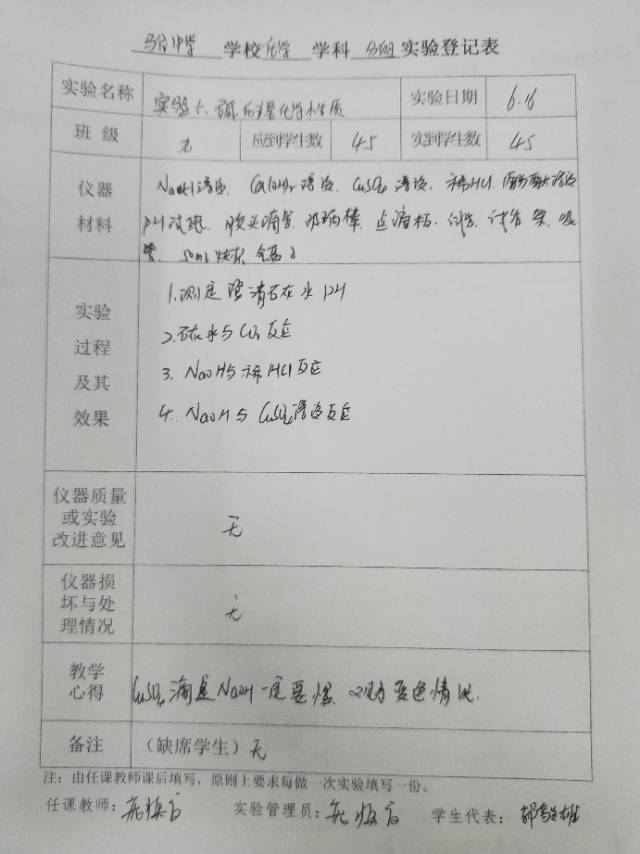 中学 学校 化学 学科 分组 实验登记表
实验名称 实验六、碱的主要化学性质 实验日期 6.16
班 级 九 应到学生数 45 实到学生数 45
仪器 NaOH溶液、Ca(OH)2溶液、CuSO4溶液、稀HCl、酚酞溶液
材料 pH试纸、胶头滴管、玻璃棒、点滴板、试管、试管架、吸
管、50ml烧杯
实验 过程 及其 效果
1.测定澄清石灰水pH
2.石灰水与CO2反应
3. NaOH与稀HCl反应
4. NaOH与CuSO4溶液反应
仪器质量
或实验 无
改进意见
仪器损
坏与处 无
理情况
教学
心得 CuSO4滴定NaOH一定要慢、观察变色情况.
备注 (缺席学生) 无
注：由任课教师课后填写，原则上要求每做一次实验填写一份。
任课教师： 实验管理员： 学生代表：